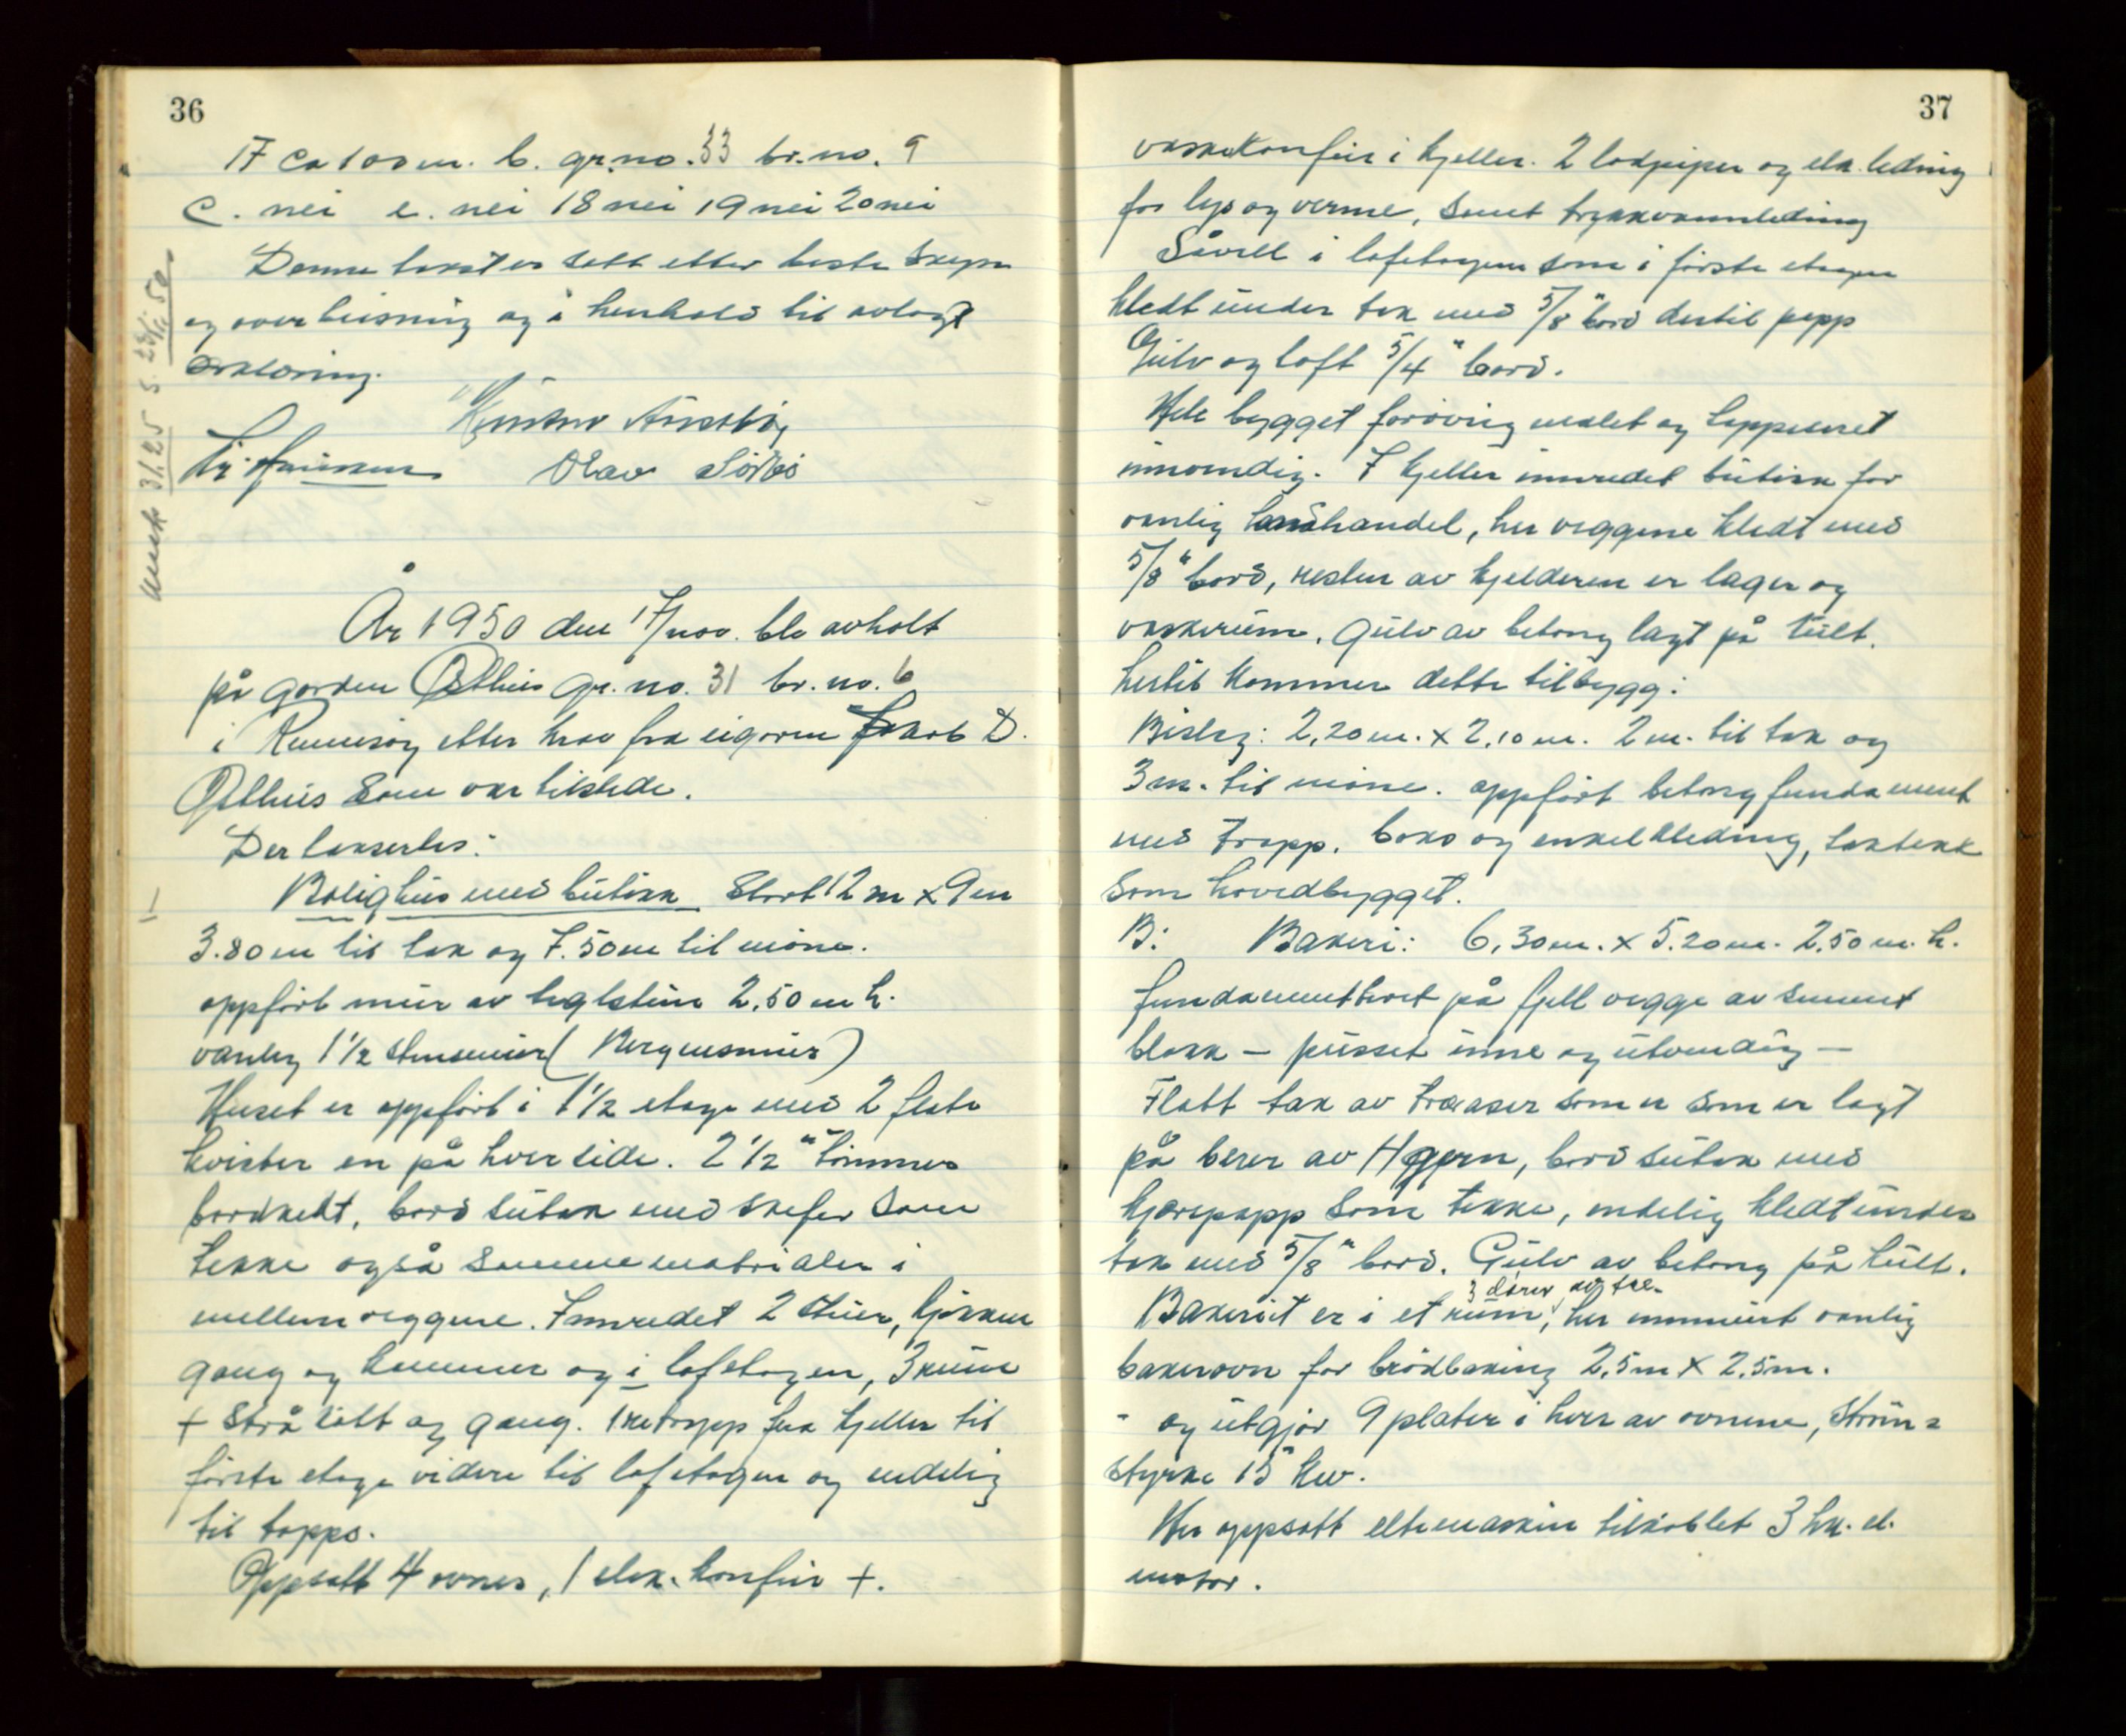 36
17 ca 100 m. b. gr.no. 33 br.no. 9
c. nei e. nei 18 nei 19 nei 20 nei
Denne takst er satt etter beste skjønn
og overbeisning og i henhold til avlagt
erklæring.
Olav Sörbö
31,25
År 1950 den 17/nov. ble avholt
på garden Østhus gr. no. 31 br. no. 6
i Rennesøy etter krav fra eigaren Jakob D.
Østhus som var tilstede.
Der taksertes:
Bolighus med butikk Stort 12 m x 9 m
3.80 m til tak og 7.50 m til möne.
oppfört mur av teglstein 2,50 m h.
vanlig 1 1/2 stensmur (Bergensmur)
Huset er oppfört i 1 1/2 etage med 2 flate
kvister en på hver side. 2 1/2" tömmer
bordkledt, bord sutak med skifer som
tekke også samme materialer i
mellem veggene. Innredet 2 stuer, kjökken
gang og kammer og i loftetagen, 3 rum
+ strå kott og gang. 1 tretrapp fra kjeller til
förste etage videre til loftetagen og endelig
til topps.
Oppsatt 4 ovner, 1 elek. komfur +.
37
vaskekomfur i kjeller. 2 lodpiper og elk. ledning
for lys og verme, samt trykkvannledning
Såvell i loftetagen som i förste etagen
kledt under tak med 5/8" bord dertil papp
Gulv og loft 5/4" bord.
Hele bygget forövrig malet og tappseret
innvendig. I kjeller innredet butikk for
vanlig landhandel, her veggene kledt med
5/8" bord, resten av kjelderen er lager og
vaskerum. Gulv av betong lagt på kult.
hertil kommer dette tilbygg:
Bislag: 2,20 m. x 2,10 m. 2 m. til tak og
3 m. til möne. oppfört betong fundament
med trapp. boks og enkel kledning, taktekk
som hovedbygget.
B: Bakeri: 6,30 m. x 5.20 m. 2,50 m. h.
fundamentert på fjell vegge av sement
blokk - pusset inne og utvendig -
Flatt tak av traaser som er som er lagt
på berer av H gjern, bord sutak med
kjærepapp som tekke, endelig kledt under
tak med 5/8" bord. Gulv av betong på kult.
3 dörer av tre.
Bakeriet er i et rum, her innmurt vanlig
bakerovn for brödbaking 2,5 m x 2,5 m.
- og utgjör 9 plater i hver av ovnene, ström=
styrke 15 kw.
Her oppsatt eltemaskin tilkoblet 3 hk. el.
motor.